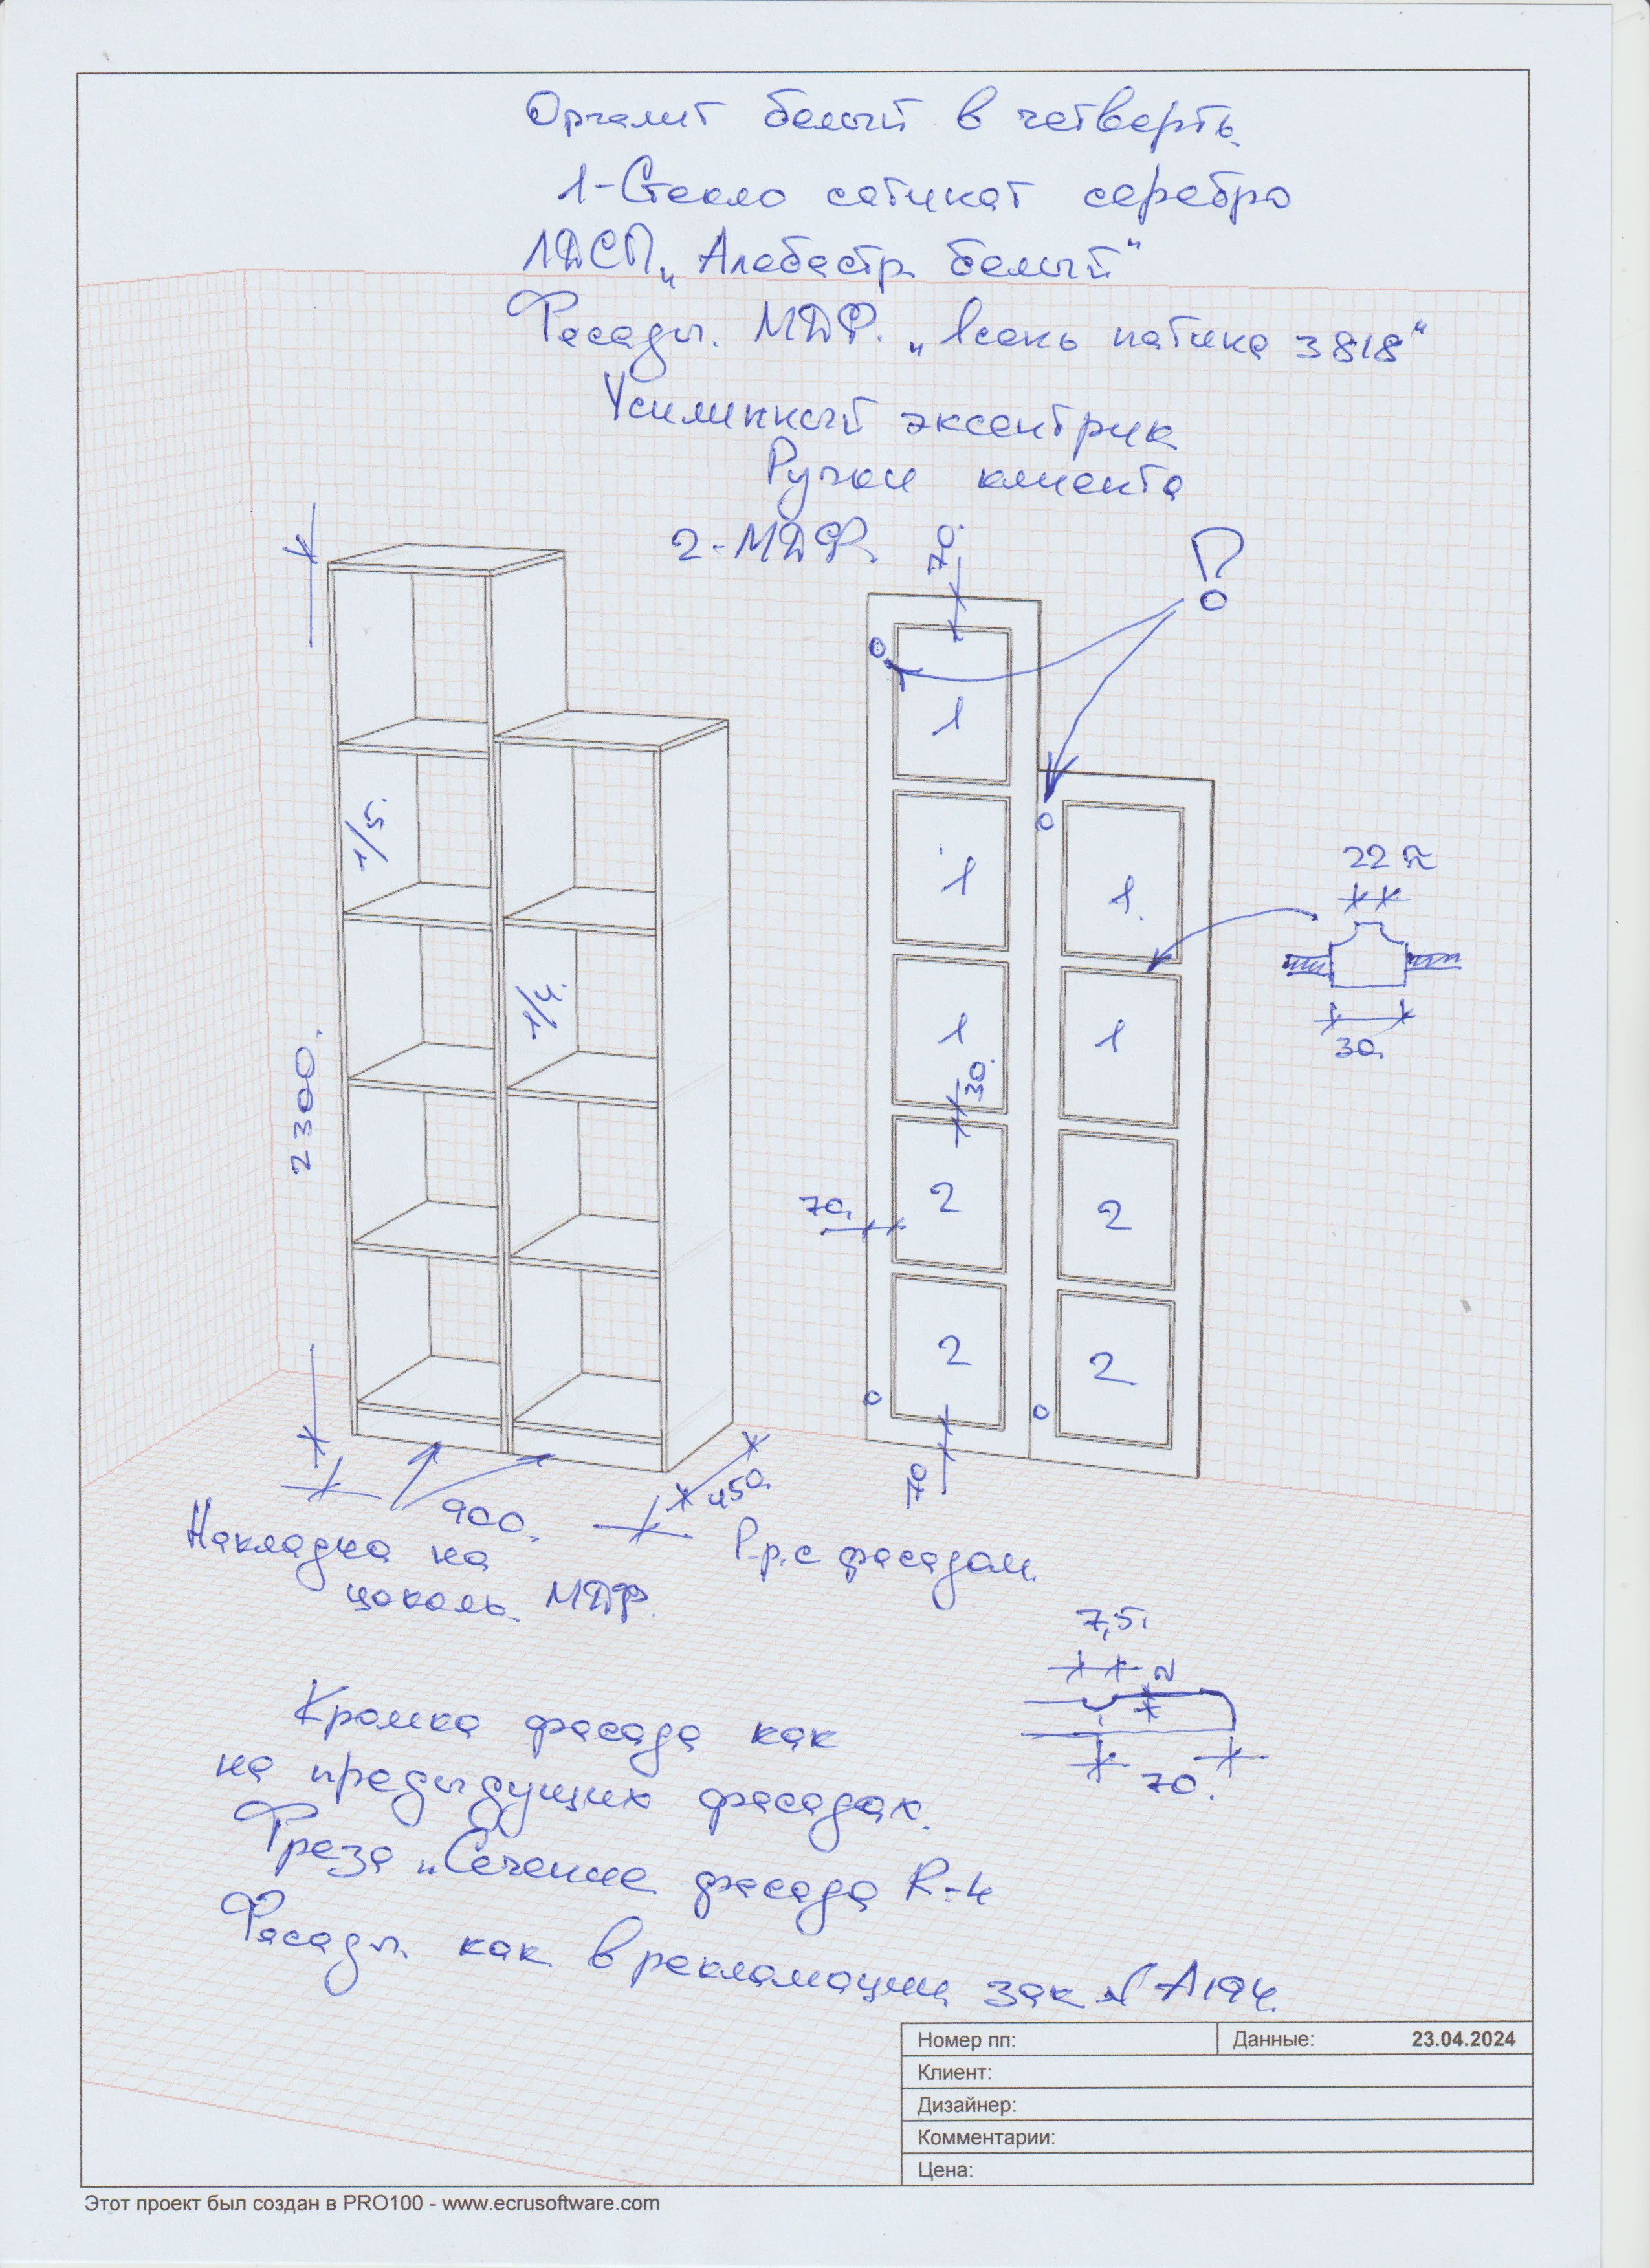 Оргалит белый в четверть.
1-Стекло сатинат серебро
ЛДСП "Алебастр белый"
Фасады. МДФ. "Ясень патина 3818"
Усилинный эксентрик
Ручки клиента
2-МДФ.
70.
1
1
1
30.
2
2
70.
70
1.
1
2
2
22 ≈
30.
1/5.
1/4.
2300.
900.
450.
Накладка на
цоколь. МДФ.
Р-р. с фасадом.
7,5.
2
70.
Кромка фасада как
на предыдущих фасадах.
Фреза "Сечение фасада R-4
Фасады. как в рекламации зак № А194.
Номер пп:
Данные: 23.04.2024
Клиент:
Дизайнер:
Комментарии:
Цена:
Этот проект был создан в PRO100 - www.ecrusoftware.com